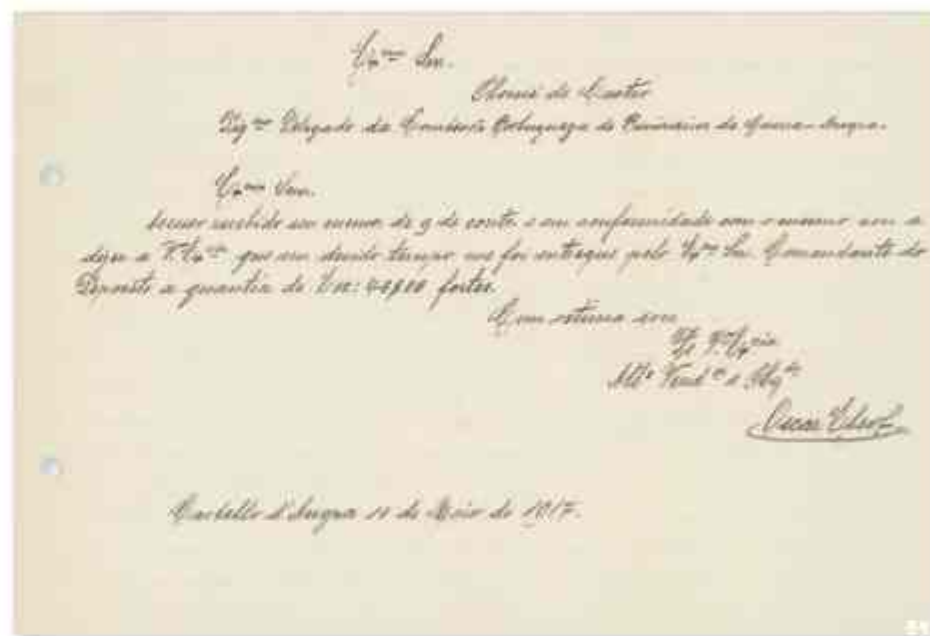 Exmo Snr.
de Castro
Digmo Delegado da Comissão Portugueza de Prisioneiros de Guerra - Angra.
Exmo Snr.
recebido seu memor. de 9 do corrte e em conformidade com o mesmo
dizer a V. Exia que em devido tempo me foi entregue pelo Exmo Snr. Comandante do
Deposito a quantia de fortes.
Com estima sou
De V. Exia
Atto Vendor e Obgdo
Oscar
Castello d'Angra 11 de Maio de 1917.